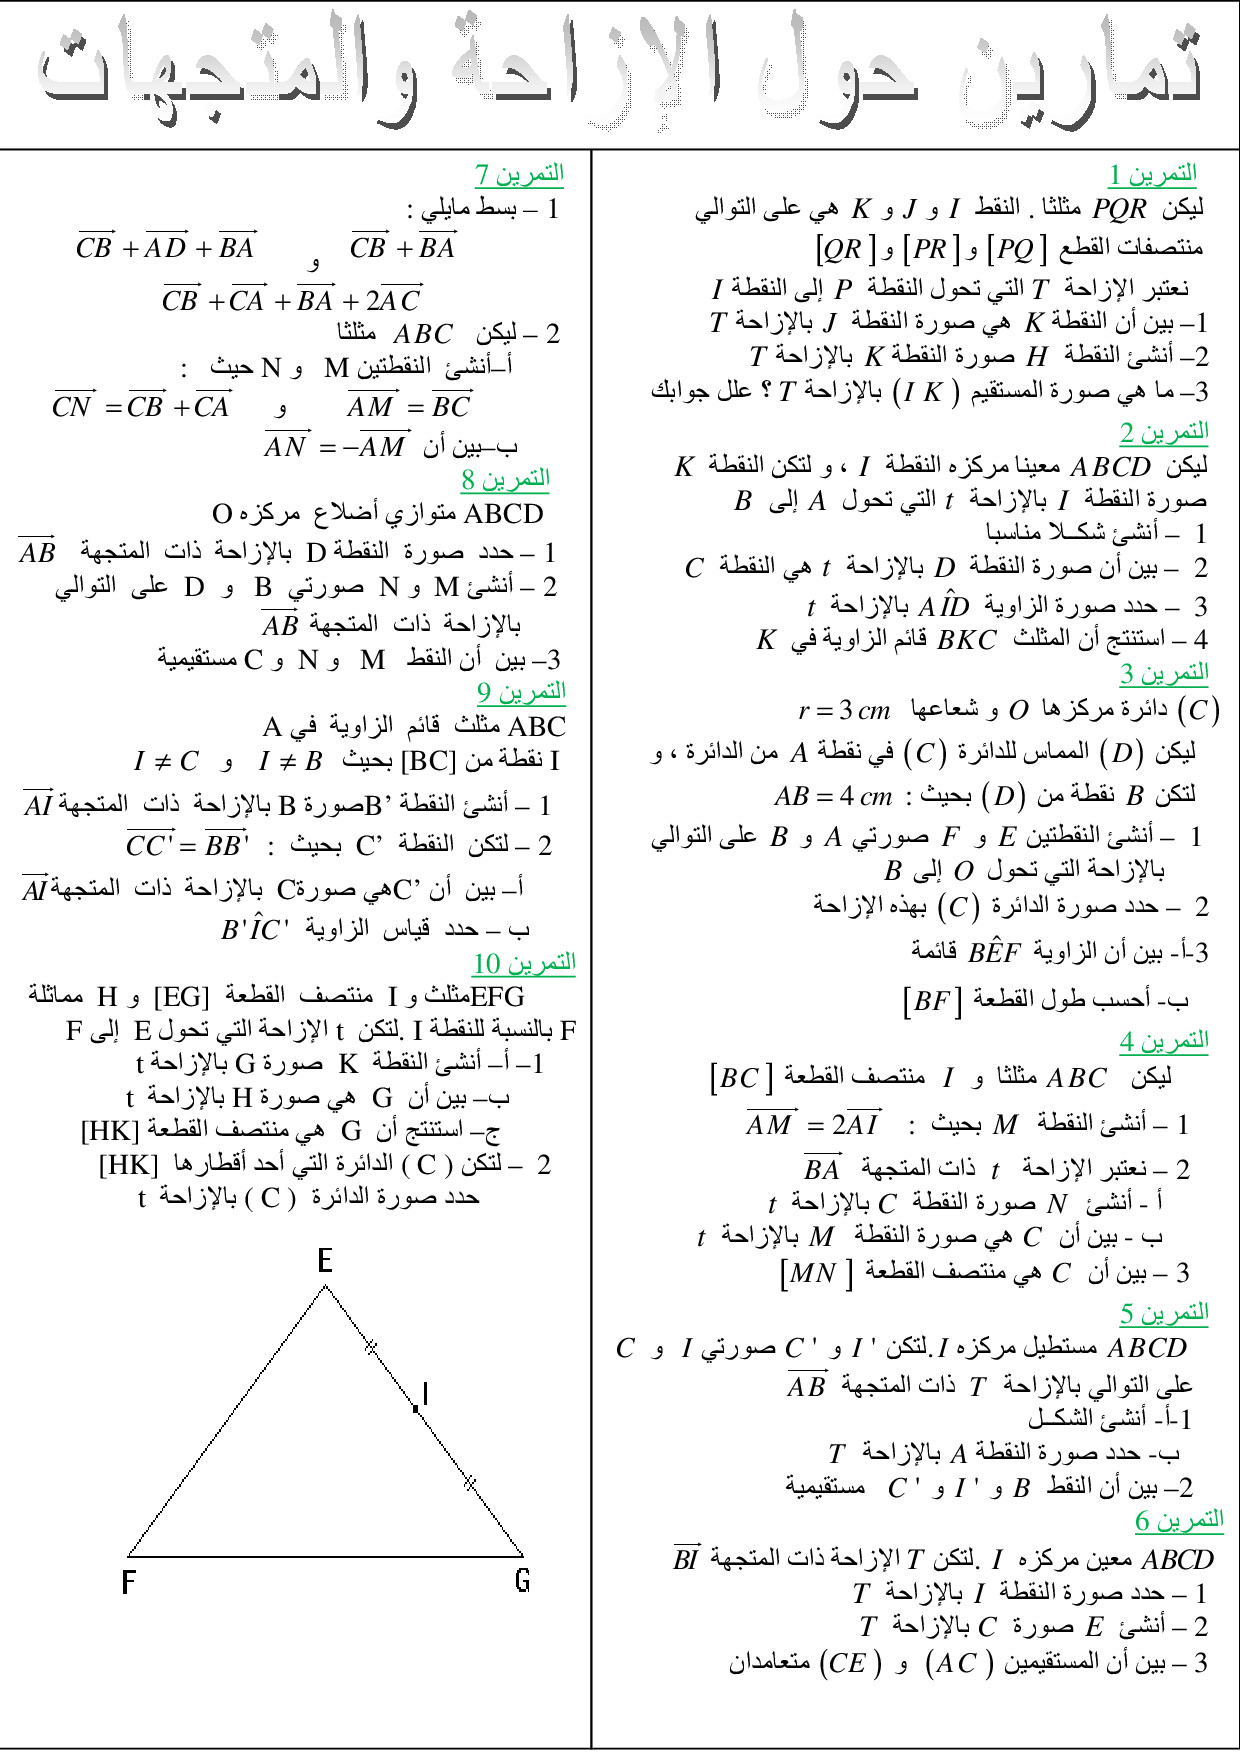 تمارين حول الإزاحة والمتجهات
التمرين 1
ليكن PQR مثلثا . النقط I و J و K هي على التوالي
منتصفات القطع [PQ] و [PR] و [QR]
نعتبر الإزاحة T التي تحول النقطة P إلى النقطة I
1– بين أن النقطة K هي صورة النقطة J بالإزاحة T
2– أنشئ النقطة H صورة النقطة K بالإزاحة T
3– ما هي صورة المستقيم (I K) بالإزاحة T ؟ علل جوابك
التمرين 2
ليكن ABCD معينا مركزه النقطة I ، و لتكن النقطة K
صورة النقطة I بالإزاحة t التي تحول A إلى B
1 – أنشئ شكـلا مناسبا
2 – بين أن صورة النقطة D بالإزاحة t هي النقطة C
3 – حدد صورة الزاوية AÎD بالإزاحة t
4 – استنتج أن المثلث BKC قائم الزاوية في K
التمرين 3
(C) دائرة مركزها O و شعاعها r = 3 cm
ليكن (D) المماس للدائرة (C) في نقطة A من الدائرة ، و
لتكن B نقطة من (D) بحيث : AB = 4 cm
1 – أنشئ النقطتين E و F صورتي A و B على التوالي
بالإزاحة التي تحول O إلى B
2 – حدد صورة الدائرة (C) بهذه الإزاحة
3-أ- بين أن الزاوية BÊF قائمة
ب- أحسب طول القطعة [BF]
التمرين 4
ليكن ABC مثلثا و I منتصف القطعة [BC]
1 – أنشئ النقطة M بحيث : $\overrightarrow{AM} = 2\overrightarrow{AI}$
2 – نعتبر الإزاحة t ذات المتجهة $\overrightarrow{BA}$
أ - أنشئ N صورة النقطة C بالإزاحة t
ب - بين أن C هي صورة النقطة M بالإزاحة t
3 – بين أن C هي منتصف القطعة [MN]
التمرين 5
ABCD مستطيل مركزه I .لتكن I ' و C ' صورتي I و C
على التوالي بالإزاحة T ذات المتجهة $\overrightarrow{AB}$
1-أ- أنشئ الشكـل
ب- حدد صورة النقطة A بالإزاحة T
2– بين أن النقط B و I ' و C ' مستقيمية
التمرين 6
ABCD معين مركزه I .لتكن T الإزاحة ذات المتجهة $\overrightarrow{BI}$
1 – حدد صورة النقطة I بالإزاحة T
2 – أنشئ E صورة C بالإزاحة T
3 – بين أن المستقيمين (AC) و (CE) متعامدان
التمرين 7
1 – بسط مايلي :
$\overrightarrow{CB} + \overrightarrow{BA}$ و $\overrightarrow{CB} + \overrightarrow{AD} + \overrightarrow{BA}$
$\overrightarrow{CB} + \overrightarrow{CA} + \overrightarrow{BA} + 2\overrightarrow{AC}$
2 – ليكن ABC مثلثا
أ–أنشئ النقطتين M و N حيث :
$\overrightarrow{AM} = \overrightarrow{BC}$ و $\overrightarrow{CN} = \overrightarrow{CB} + \overrightarrow{CA}$
ب–بين أن $\overrightarrow{AN} = -\overrightarrow{AM}$
التمرين 8
ABCD متوازي أضلاع مركزه O
1 – حدد صورة النقطة D بالإزاحة ذات المتجهة $\overrightarrow{AB}$
2 – أنشئ M و N صورتي B و D على التوالي
بالإزاحة ذات المتجهة $\overrightarrow{AB}$
3– بين أن النقط M و N و C مستقيمية
التمرين 9
ABC مثلث قائم الزاوية في A
I نقطة من [BC] بحيث I ≠ B و I ≠ C
1 – أنشئ النقطة B’صورة B بالإزاحة ذات المتجهة $\overrightarrow{AI}$
2 – لتكن النقطة C’ بحيث : $\overrightarrow{CC'} = \overrightarrow{BB'}$
أ– بين أن C’هي صورةC بالإزاحة ذات المتجهة $\overrightarrow{AI}$
ب – حدد قياس الزاوية B'ÎC'
التمرين 10
EFGمثلث و I منتصف القطعة [EG] و H مماثلة
F بالنسبة للنقطة I .لتكن t الإزاحة التي تحول E إلى F
1– أ– أنشئ النقطة K صورة G بالإزاحة t
ب– بين أن G هي صورة H بالإزاحة t
ج– استنتج أن G هي منتصف القطعة [HK]
2 – لتكن ( C ) الدائرة التي أحد أقطارها [HK]
حدد صورة الدائرة ( C ) بالإزاحة t
E
I
F
G